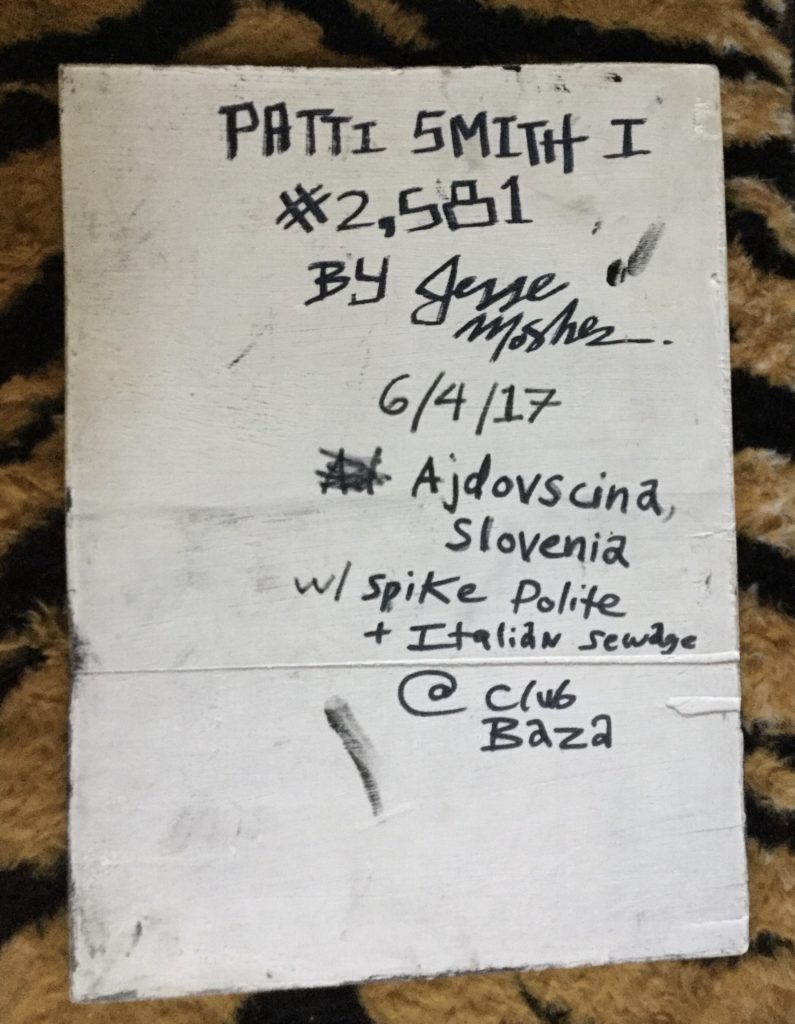 PATTI SMITH I
#2,581
BY Jesse
Mosher.
6/4/17
Ajdovscina,
Slovenia
w/ Spike Polite
+ Italian Sewage
@ Club
Baza